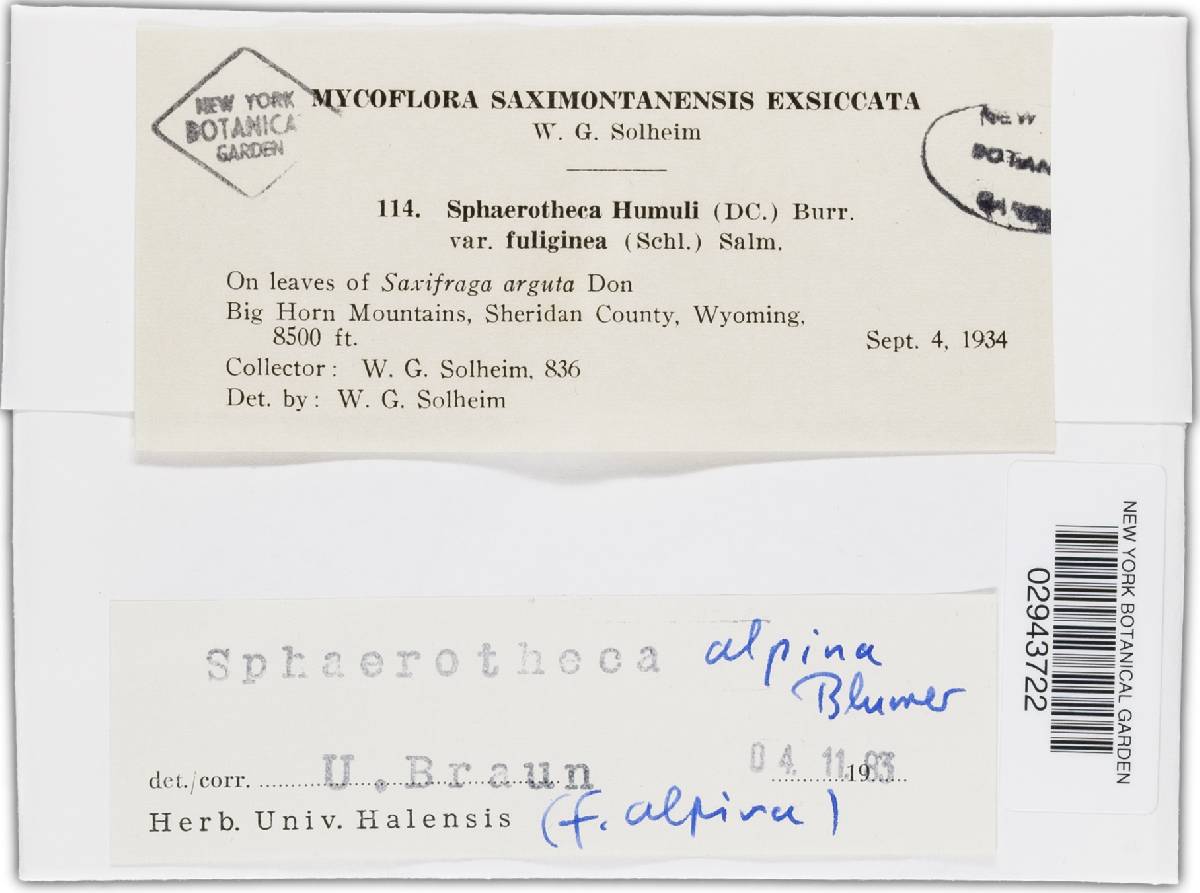 NEW YORK
BOTANICA
GARDEN
MYCOFLORA SAXIMONTANENSIS EXSICCATA
W. G. Solheim
NEW
BOTAN
114. Sphaerotheca Humuli (DC.) Burr.
var. fuliginea (Schl.) Salm.
On leaves of Saxifraga arguta Don
Big Horn Mountains, Sheridan County, Wyoming,
8500 ft.
Sept. 4, 1934
Collector: W. G. Solheim, 836
Det. by: W. G. Solheim
NEW YORK BOTANICAL GARDEN
02943722
Sphaerotheca alpina
Blumer
det./corr. U. Braun 04. 11. 1983
Herb. Univ. Halensis (f. alpina)